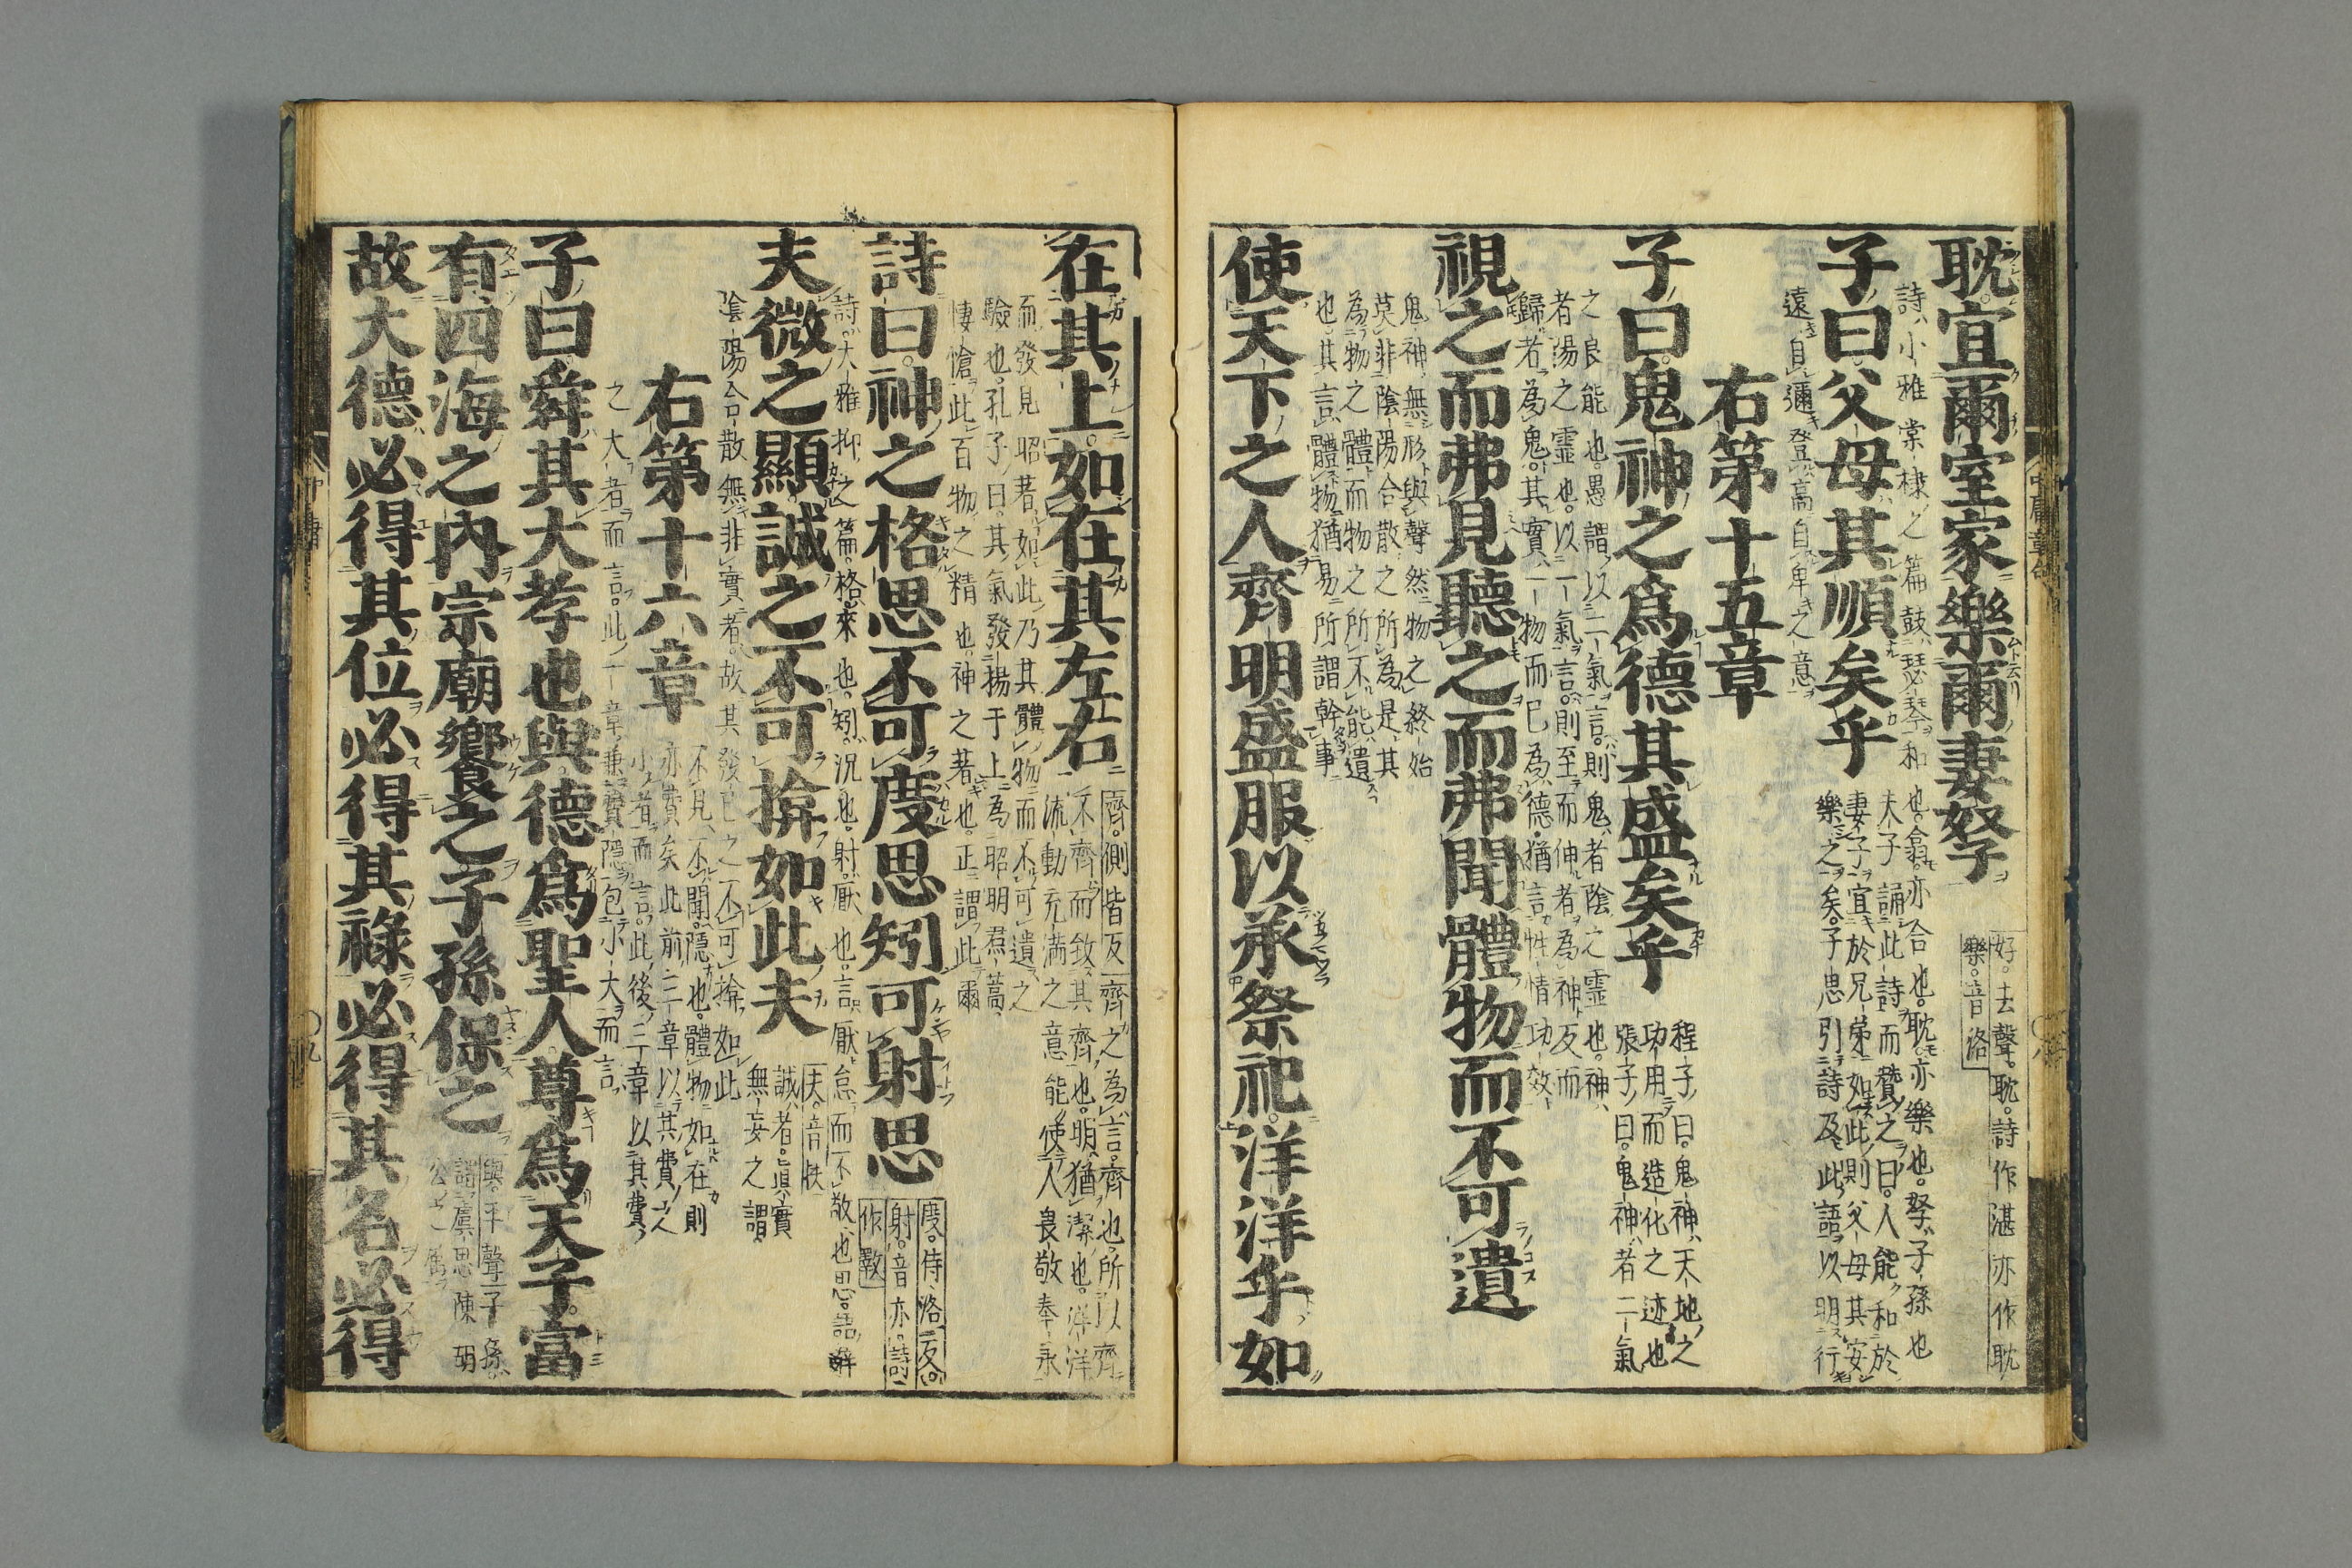 耽宜爾室家樂爾妻帑
好去聲耽詩作湛亦作耽
樂音洛
詩小雅常棣之篇鼓瑟琴和也翕亦合也耽亦樂也帑子孫也
子曰父母其順矣乎
夫子誦此詩而贊之曰人能和於
妻子宜於兄弟如此則父母其安
樂之矣子思引詩及此語以明行
遠自邇登高自卑之意
右第十五章
子曰鬼神之爲德其盛矣乎
程子曰鬼神天地之
功用而造化之迹也
張子曰鬼神者二氣
之良能也愚謂以二氣言則鬼者陰之靈也神
者陽之靈也以一氣言則至而伸者為神反而
歸者為鬼其實一物而已為德猶言性情功效
視之而弗見聽之而弗聞體物而不可遺
鬼神無形與聲然物之終始
莫非陰陽合散之所為是其
為物之體而物之所不能遺
也其言體物猶易所謂幹事
使天下之人齊明盛服以承祭祀洋洋乎如
在其上如在其左右
齊側皆反齊之為言齊也所以齊
不齊而致其齊也明猶潔也洋洋
流動充滿之意能使人畏敬奉承
而發見昭著如此乃其體物而不可遺之
驗也孔子曰其氣發揚于上為昭明焄蒿
悽愴此百物之精也神之著也正謂此爾
詩曰神之格思不可度思矧可射思
度待洛反
射音亦詩
作斁
詩大雅抑之篇格來也矧況也射厭也言厭怠而不敬也思語辭
夫微之顯誠之不可揜如此夫
夫音扶
誠者眞實
無妄之謂
陰陽合散無非實者故其發已之不可揜如此
右第十六章
不見不聞隱也體物如在則
亦費矣此前三章以其費之
小者而言此後三章以其費
之大者而言此一章兼費隱包小大而言
子曰舜其大孝也與德爲聖人尊爲天子富
有四海之內宗廟饗之子孫保之
與平聲子孫
謂虞思陳胡
公之屬
故大德必得其位必得其祿必得其名必得